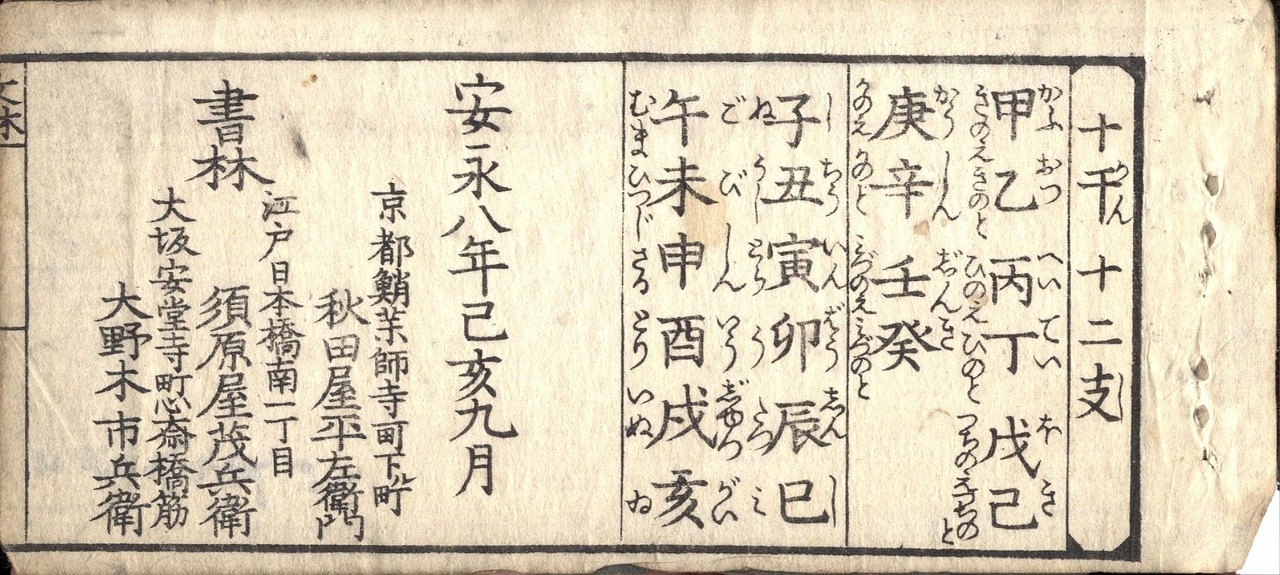 十干十二支
かん し
かふ おつ へいてい ぼ き
甲乙丙丁戊己
きのえきのと ひのえひのと つちのえつちのと
かうしん じんき
庚辛壬癸
かのえかのと みづのえみづのと
し ちう いん ばう しん し
子丑寅卯辰巳
ね うし とら う たつ み
ご び しん いう じゆつ がい
午未申酉戌亥
むま ひつじ さる とり いぬ ゐ
安永八年己亥九月
京都鮹薬師寺町下ル町
秋田屋平左衛門
江戸日本橋南一丁目
書林 須原屋茂兵衛
大坂安堂寺町心斎橋筋
大野木市兵衛